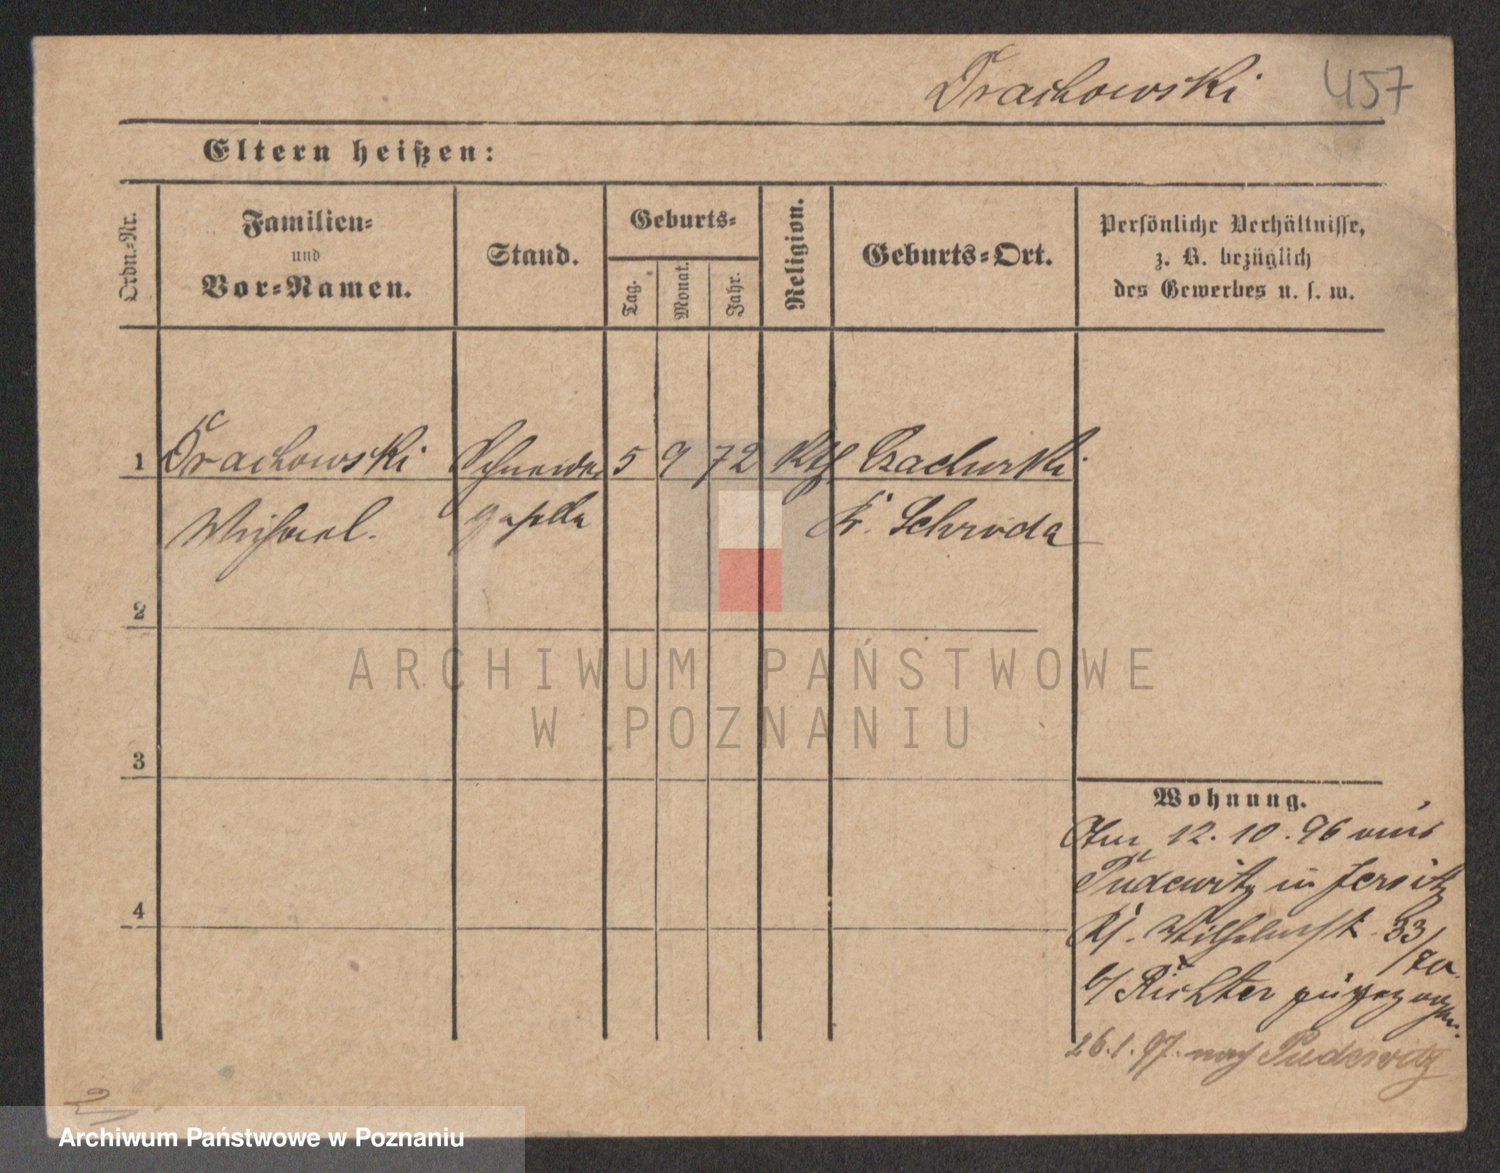 Drachowski 457
Eltern heißen:
Ordn.-Nr.
Familien-
und
Vor-Namen.
Stand.
Geburts-
Tag.
Monat.
Jahr.
Religion.
Geburts-Ort.
Persönliche Verhältnisse,
z. B. bezüglich
des Gewerbes u. s. w.
1 Drachowski Schneider 5 9 72 Kth Czachurski
Michael. geselle Kr. Schroda
2
ARCHIWUM PAŃSTWOWE
W POZNANIU
3
Wohnung.
Am 12.10.96 aus
Pudewitz in Jersitz
Kl. Wilhelmst 33/
b/ Richter zugezogen.
4
26.1.97. nach Pudewitz
Archiwum Państwowe w Poznaniu